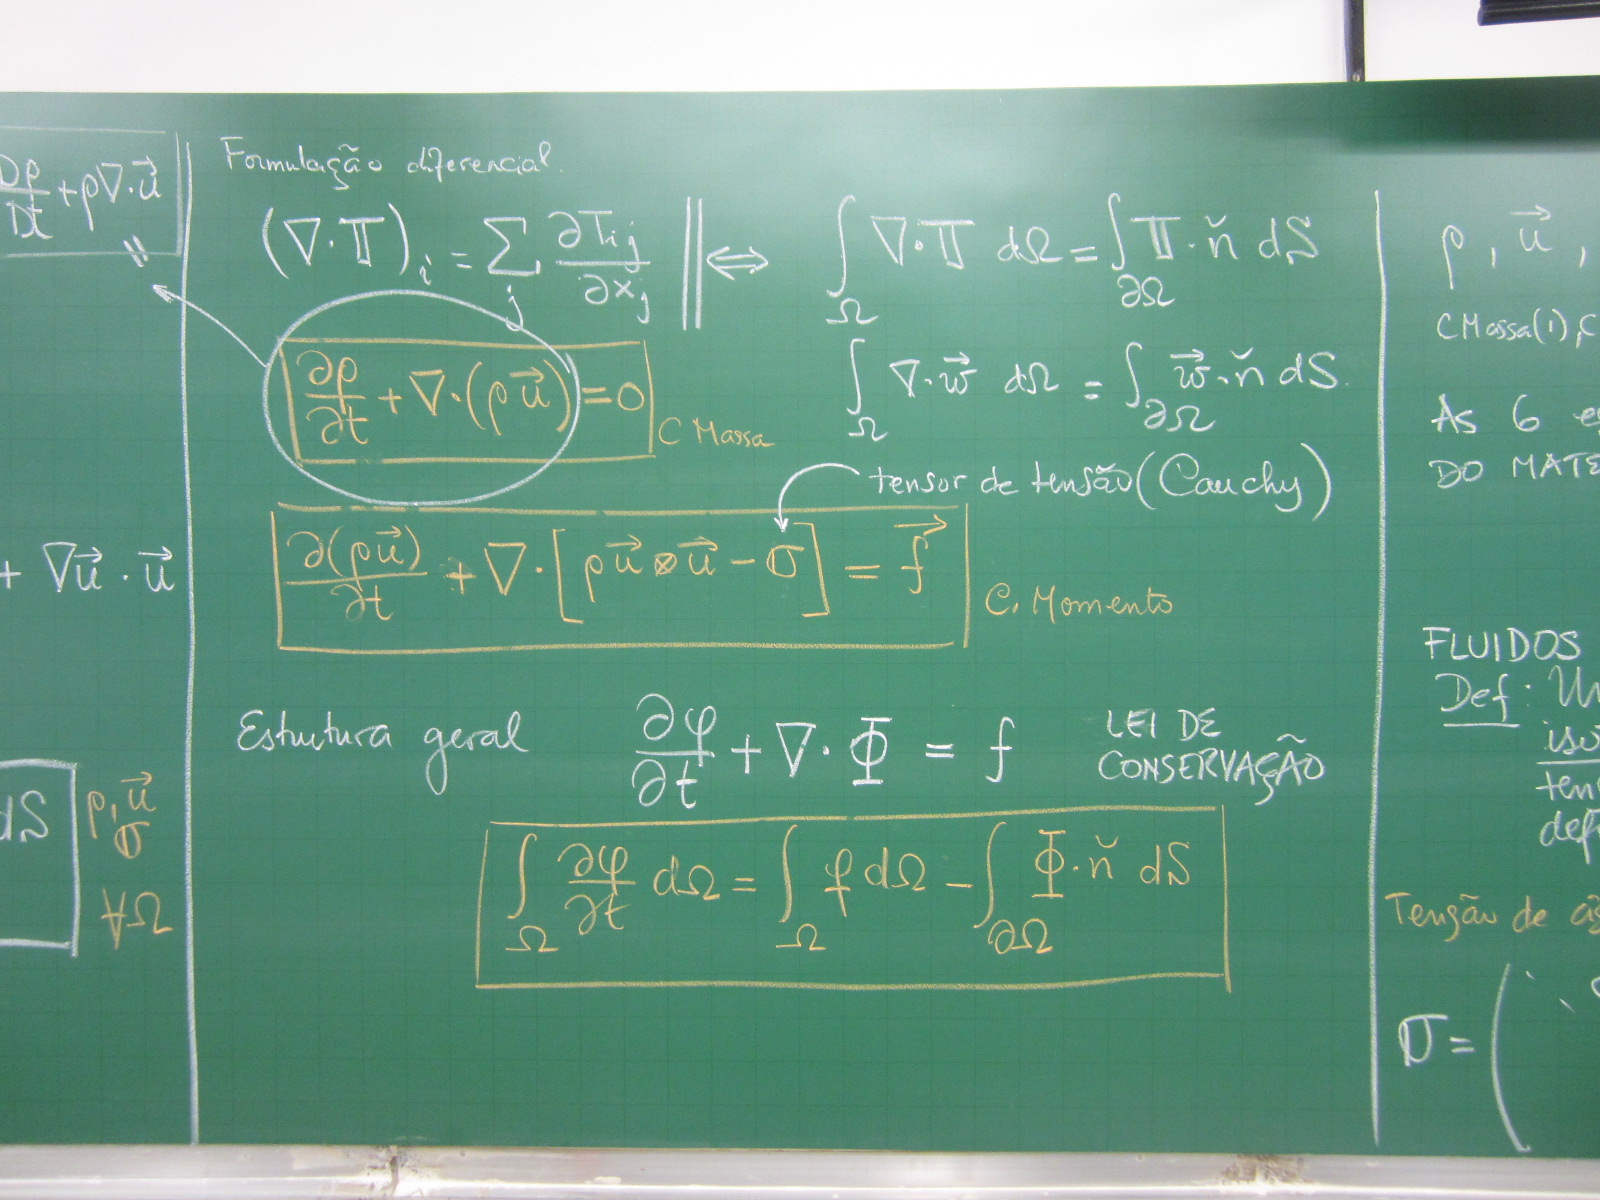 Dρ/Dt + ρ∇·u⃗
+ ∇u⃗ · u⃗
dS
ρ, u⃗
σ
∀Ω
Formulação diferencial
(∇·𝕋)ᵢ = ∑ⱼ ∂Tᵢⱼ/∂xⱼ ‖ ⟺ ∫_Ω ∇·𝕋 dΩ = ∫_∂Ω 𝕋·ň dS
∂ρ/∂t + ∇·(ρu⃗) = 0 C Massa
∫_Ω ∇·w⃗ dΩ = ∫_∂Ω w⃗·ň dS
tensor de tensão (Cauchy)
∂(ρu⃗)/∂t + ∇·[ρu⃗⊗u⃗ − σ] = f⃗ C. Momento
Estrutura geral ∂φ/∂t + ∇·Φ = f LEI DE
CONSERVAÇÃO
∫_Ω ∂φ/∂t dΩ = ∫_Ω f dΩ − ∫_∂Ω Φ·ň dS
ρ, u⃗,
C Massa(1), C
AS 6
DO MATE
FLUIDOS
Def:
iso
ten
def
Tensão de
σ = (